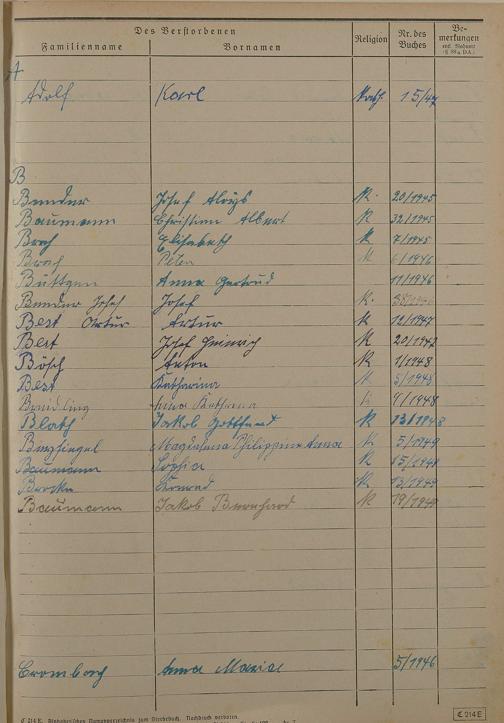 Des Verstorbenen
Familienname Vornamen Religion Nr. des Buches Bemerkungen
A
Adolf Karl kath. 15/47
B
Bender Josef Aloys K. 20/1945
Baumann Christian Albert K 32/1945
Brach Elisabeth K 7/1945
Brach Peter K 6/1946
Büttgen Anna Gertrud 11/1946
Bender Josef Josef K.
Best Artur Artur K 12/1947
Best Josef Heinrich K 20/1948
Bösch Anton K 1/1948
Best Katharina K 5/1948
Anna K 4/1948
Blath Jakob Gottfried K 13/1948
Magdalena Philippine Anna K 5/1949
Baumann Sophia K 15/1949
Konrad K 13/1949
Baumann Jakob Bernhard K 19/1949
Cromberg Anna Maria 5/1946
C 214 E. Alphabetisches Namensverzeichnis zum Sterbebuch. Nachdruck verboten.
C 214 E